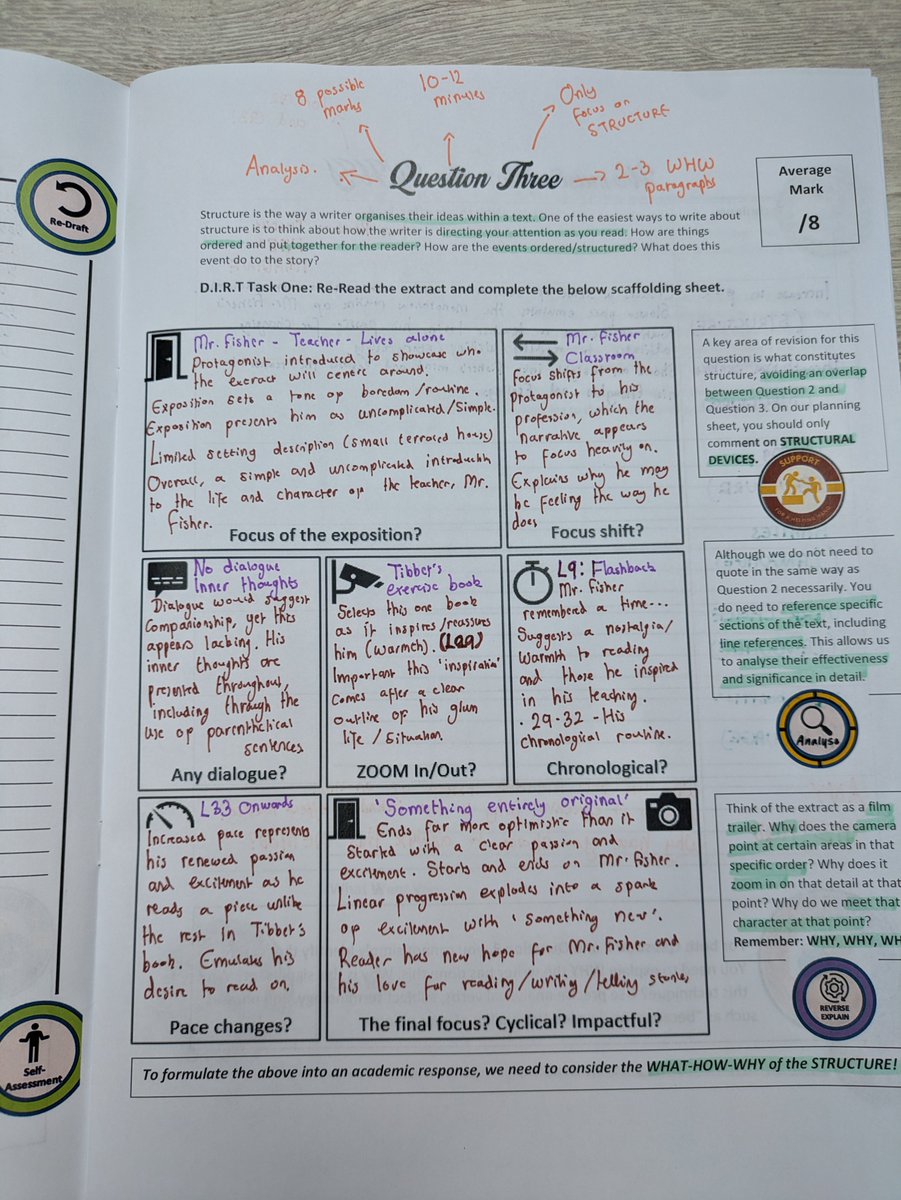 8 possible marks
10-12 minutes
Only focus on STRUCTURE
Analysis.
Question Three
2-3 WHW paragraphs
Average
Mark
/8
Re-Draft
Structure is the way a writer organises their ideas within a text. One of the easiest ways to write about
structure is to think about how the writer is directing your attention as you read. How are things
ordered and put together for the reader? How are the events ordered/structured? What does this
event do to the story?
D.I.R.T Task One: Re-Read the extract and complete the below scaffolding sheet.
Mr. Fisher - Teacher - Lives alone
Protagonist introduced to showcase who
the extract will centre around.
Exposition sets a tone of boredom/routine.
Exposition presents him as uncomplicated/simple.
Limited setting description (small terraced house)
Overall, a simple and uncomplicated introduction
to the life and character of the teacher, Mr.
Fisher.
Focus of the exposition?
Mr. Fisher
Classroom
Focus shifts from the
protagonist to his
profession, which the
narrative appears
to focus heavily on.
Explains why he may
be feeling the way he
does
Focus shift?
A key area of revision for this
question is what constitutes
structure; avoiding an overlap
between Question 2 and
Question 3. On our planning
sheet, you should only
comment on STRUCTURAL
DEVICES.
SUPPORT
No dialogue
Inner thoughts
Dialogue would suggest
companionship, yet this
appears lacking. His
inner thoughts are
presented throughout,
including through the
use of parenthetical
sentences
Any dialogue?
Tibbet's
exercise book
Selects this one book
as it inspires/reassures
him (warmth). (L29)
Important this 'inspiration'
comes after a clear
outline of his glum
life/situation.
ZOOM In/Out?
L9: Flashback
Mr. Fisher
remembered a time...
Suggests a nostalgia/
warmth to reading
and those he inspired
in his teaching.
. 29-32 - His
chronological routine.
Chronological?
Although we do not need to
quote in the same way as
Question 2 necessarily. You
do need to reference specific
sections of the text, including
line references. This allows us
to analyse their effectiveness
and significance in detail.
Analyse
L33 Onwards
Increased pace represents
his renewed passion
and excitement as he
reads a piece unlike
the rest in Tibbet's
book. Emulates his
desire to read on.
Pace changes?
'Something entirely original'
Ends far more optimistic than it
started with a clear passion and
excitement. Starts and ends on Mr. Fisher.
Linear progression explodes into a spark
of excitement with 'something new'.
Reader has new hope for Mr. Fisher and
his love for reading/writing/telling stories
The final focus? Cyclical? Impactful?
Think of the extract as a film
trailer. Why does the camera
point at certain areas in that
specific order? Why does it
zoom in on that detail at that
point? Why do we meet that
character at that point?
Remember: WHY, WHY, WH
REVERSE
EXPLAIN
Self-
Assessment
To formulate the above into an academic response, we need to consider the WHAT-HOW-WHY of the STRUCTURE!